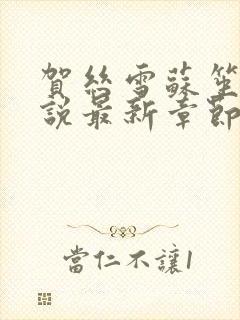 賀絲雪蘇笙
說最新章節
當仁不讓1